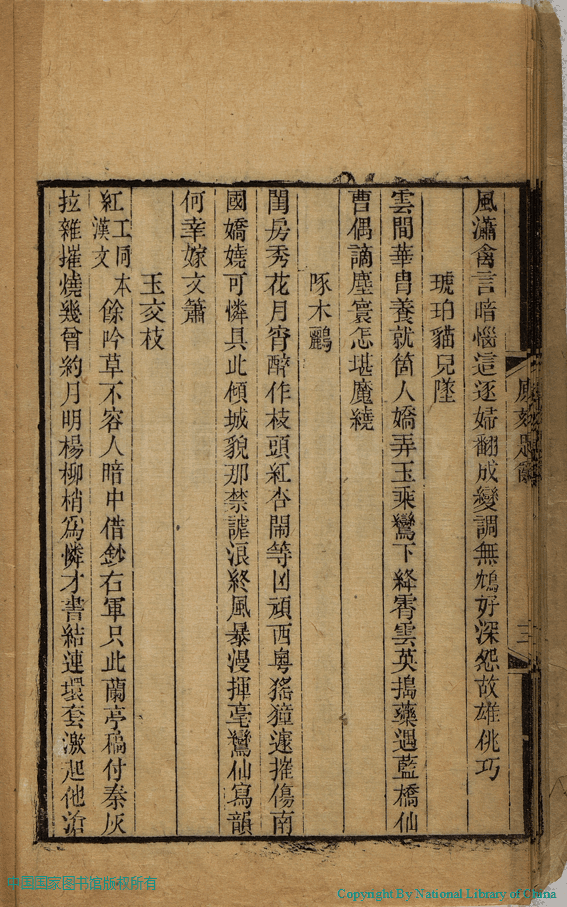 風瀟禽言暗惱這逐婦翻成變調無鳩好深怨故雄佻巧
琥珀貓兒墜
雲間華冑養就箇人嬌弄玉乘鸞下絳霄雲英搗藥遇藍橋仙
曹偶謫塵寰怎堪魔繞
啄木鸝
閨房秀花月宵醉作枝頭紅杏鬧等凶頑西粵猺獞遽摧傷南
國嬌嬈可憐具此傾城貌那禁謔浪終風暴漫揮毫鸞仙寫韻
何幸嫁文簫
玉交枝
紅工同本漢文餘吟草不容人暗中借鈔右軍只此蘭亭稿付秦灰
拉雜摧燒幾曾約月明楊柳梢爲憐才書結連環套激起他滄
三
中国国家图书馆版权所有
Copyright By National Library of China